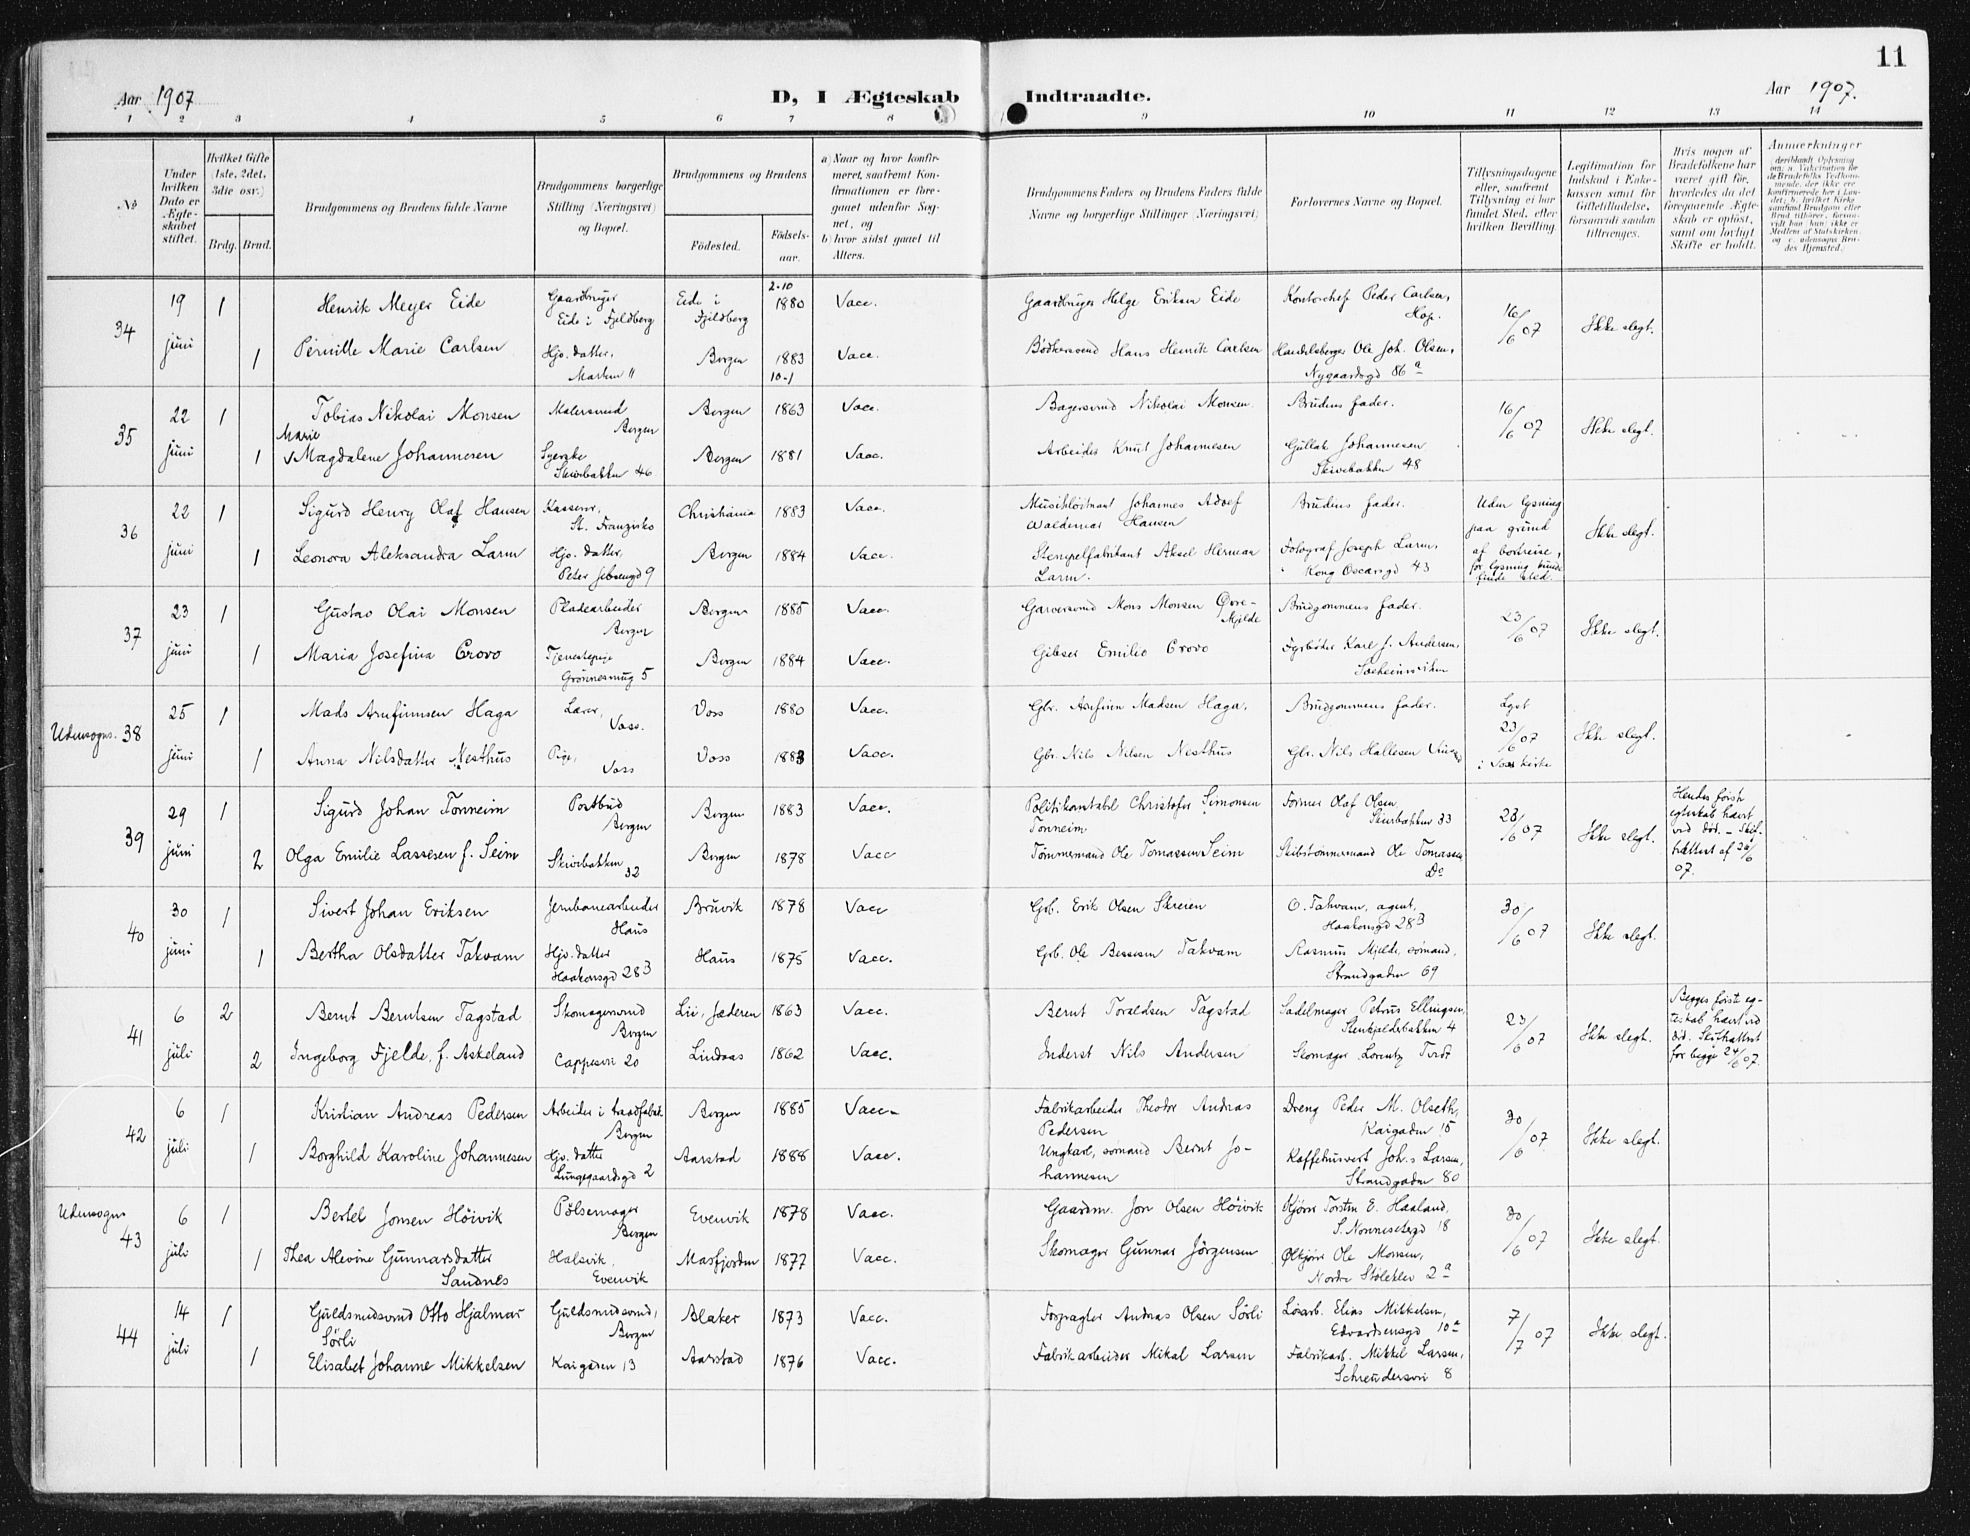 11
Aar 1907
D, I Ægteskab Indtraadte.
Aar 1907.
1 2 3 4 5 6 7 8 9 10 11 12 13 14
No
Under hvilken Dato er Ægteskabet stiftet.
Hvilket Gifte (1ste, 2det, 3die osv.)
Brdg. Brud.
Brudgommens og Brudens fulde Navne
Brudgommens borgerlige Stilling (Næringsvei) og Bopæl.
Brudgommens og Brudens
Födested. Födselsaar.
a) Naar og hvor konfirmeret, saafremt Konfirmationen er foregaaet udenfor Sognet, og
b) hvor sidst gaaet til Alters.
Brudgommens Faders og Brudens Faders fulde Navne og borgerlige Stillinger (Næringsvei).
Forlovernes Navne og Bopæl.
Tillysningsdagene eller, saafremt Tillysning ei har fundet Sted, efter hvilken Bevilling.
Legitimation for Indskud i Enkekassen samt for Giftetilladelse, forsaavidt saadan tiltrænges.
Hvis nogen af Brudefolkene har været gift før, hvorledes da det foregaaende Ægteskab er opløst, samt om lovligt Skifte er holdt.
Anmærkninger
34 19 juni 1 Henrik Meyer Eide Gaardbruger Eide i Fjeldberg Eide i Fjeldberg 2-10 1880 Vacc. Gaardbruger Helge Eriksen Eide Kontorchef Peder Carlsen, Hop. 16/6 07 Ikke slegt.
1 Pernille Marie Carlsen Hjv. datter, Marken 11 Bergen 1883 10-1 Vacc. Bødkersvend Hans Henrik Carlsen Handelsborger Ole Joh. Olsen, Nygaardsgd 86 a
35 22 juni 1 Tobias Nikolai Monsen Malersvend Bergen Bergen 1863 Vacc. Bagersvend Nikolai Monsen. Brudens fader. 16/6 07 Ikke slegt.
1 Marie √Magdalene Johannesen Syerske Skivebakken 46 Bergen 1881 Vacc. Arbeider Knut Johannesen Gullak Johannesen Skivebakken 48
36 22 juni 1 Sigurd Henry Olaf Hansen Kasserer, St. Franzisko Christiania 1883 Vacc. Musikløitnant Johannes Adolf Waldemar Hansen Brudens fader. Uden lysning paa grund af bortreise, før lysning kunde finde sted. Ikke slegt.
1 Leonora Aleksandra Larm Hjv. datter, Peter Jebsensgd 9 Bergen 1884 Vacc. Stempelfabrikant Aksel Herman Larm. Fotograf Joseph Larm, Kong Oscarsgd 43
37 23 juni 1 Gustav Olai Monsen Pladearbeider Bergen Bergen 1885 Vacc. Garversvend Mons Monsen Øvre-Mjelde Brudgommens fader. 23/6 07 Ikke slegt.
1 Maria Josefina Crovo Tjenestepige Grønnesmug 5 Bergen 1884 Vacc. Gibser Emilio Crovo Fyrbøter Karl J. Andersen, Solheimsviken
Udensogns. 38 25 juni 1 Mads Arnfinnsen Haga Lærer, Voss. Voss 1880 Vacc. Gbr. Arnfinn Madsen Haga. Brudgommens fader. Lyst 23/6 07 i Voss kirke Ikke slegt.
1 Anna Nilsdatter Nesthus Pige, Voss Voss 1883 Vacc. Gbr. Nils Nilsen Nesthus Gbr. Nils Hallesen
39 29 juni 1 Sigurd Johan Tonneim Postbud Bergen Bergen 1883 Vacc. Politikonstabel Christofer Simonsen Tonneim Former Olaf Olsen, Skivebakken 33 23/6 07 Ikke slegt. Hendes første egteskab hævet ved død. – Skifteattest af 24/6 07.
2 Olga Emilie Lassesen f. Seim Skivebakken 32 Bergen 1878 Vacc Tømmermand Ole Tomassen Seim Skibstømmermand Ole Tomassen Do
40 30 juni 1 Sivert Johan Eriksen Jernbanearbeider Haus Bruvik 1878 Vacc Grb. Erik Olsen Skreien O. Takvam, agent, Haakonsgd 283 30/6 07 Ikke slegt.
1 Bertha Olsdatter Takvam Hjv. datter Haakonsgd 283 Haus 1875 Vacc. Grb. Ole Bessesen Takvam Rasmus Mjelde, sømand, Strandgaden 69
41 6 juli 2 Bernt Berntsen Tagstad Skomagersvend Bergen Lii, Jæderen 1863 Vacc. Bernt Toraldsen Tagstad Sadelmager Petrus Ellingsen, Stenkjeldebakken 4 23/6 07 Ikke slegt. Begges første egteskab hævet ved død. Skifteattest for begge 24/6 07.
2 Ingeborg Fjelde, f. Askeland Cappesvei 20 Lindaas 1862 Vacc. Inderst Nils Andersen Skomager Lorentz Tvedt
42 6 juli 1 Kristian Andreas Pedersen Arbeider i traadfabr. Bergen Bergen 1885 Vacc. Fabrikarbeider Theodor Andreas Pedersen Dreng Peder M. Olseth, Kaigaden 15 30/6 07 Ikke slegt.
1 Borghild Karoline Johannesen Hjv. datter Lungegaardsgd 2 Aarstad 1888 Vacc. Ungkarl, sømand Bernt Johannesen Kaffehusvert Joh.s Larsen, Strandgaden 80
Udensogns 43 6 juli 1 Bertel Jonsen Höivik Pølsemager Bergen Evenvik 1878 Vacc. Gaardm. Jon Olsen Höivik Kjører Torsten E. Haaland, S. Nonnesetergd 18 30/6 07 Ikke slegt.
1 Thea Alevine Gunnarsdatter Sandnes Halsvik, Evenvik Masfjorden 1877 Vacc. Skomager Gunnar Jörgensen Ølkjører Ole Monsen, Nordre Stølekler 2 a
44 14 juli 1 Guldsmedsvend Otto Hjalmar Sörli Guldsmedsvend, Bergen Blaker 1873 Vacc. Forpagter Andreas Olsen Sörli Løsarb. Elias Mikkelsen, Edvardsensgd 10 a 7/7 07 Ikke slegt.
1 Elisabet Johanne Mikkelsen Kaigaden 13 Aarstad 1876 Vacc. Fabrikarbeider Mikal Larsen Fabrikarb. Mikkel Larsen, Schreudersvei 8